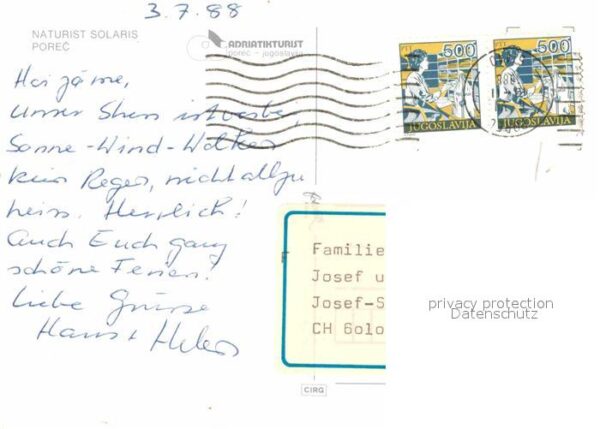 3.7.88
NATURIST SOLARIS
POREČ
ADRIATIKTURIST
poreč - jugoslavija
PTT
500
JUGOSLAVIJA
PTT
500
JUGOSLAVIJA
Hoi zäme,
unser
Sonne-Wind-Wolken
kein Regen, nicht allzu
heiss. Herrlich!
Auch Euch ganz
schöne Ferien!
Liebe Grüsse
Hans +
Familie
Josef u
Josef-S
CH 6010
privacy protection
Datenschutz
CIRG